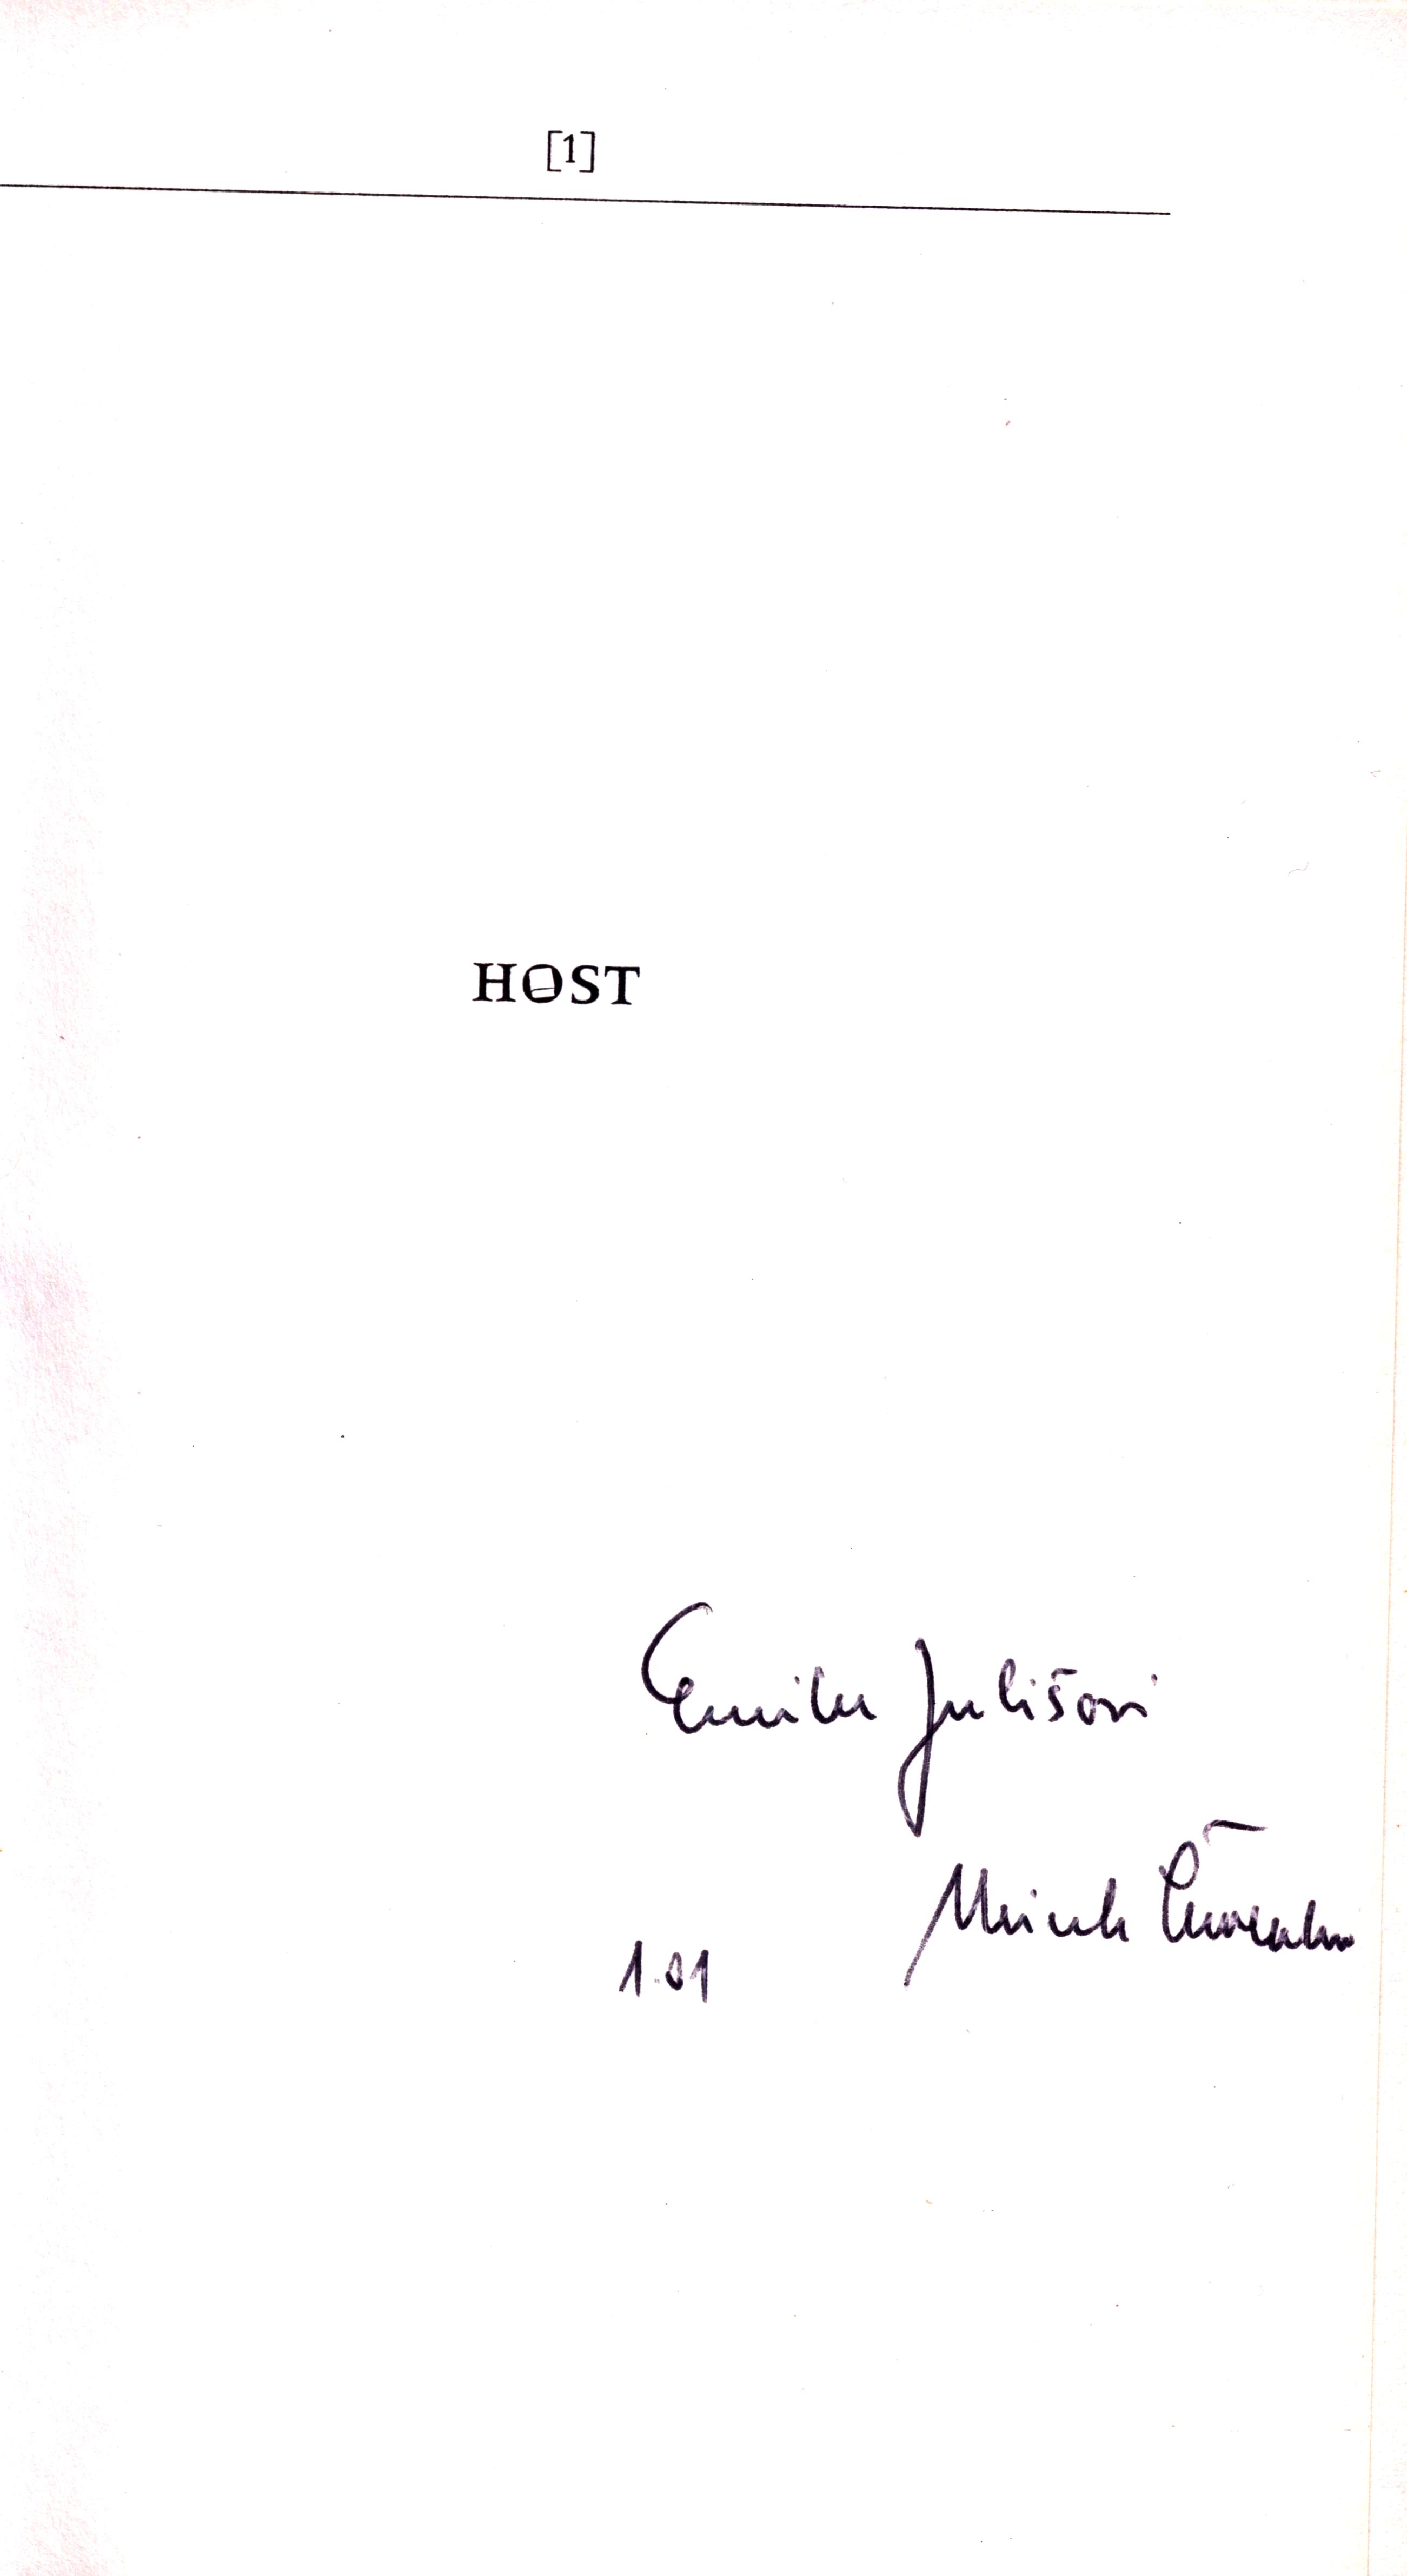 [1]
HOST
Emilu Julišovi
Mirek Čermák
1.01